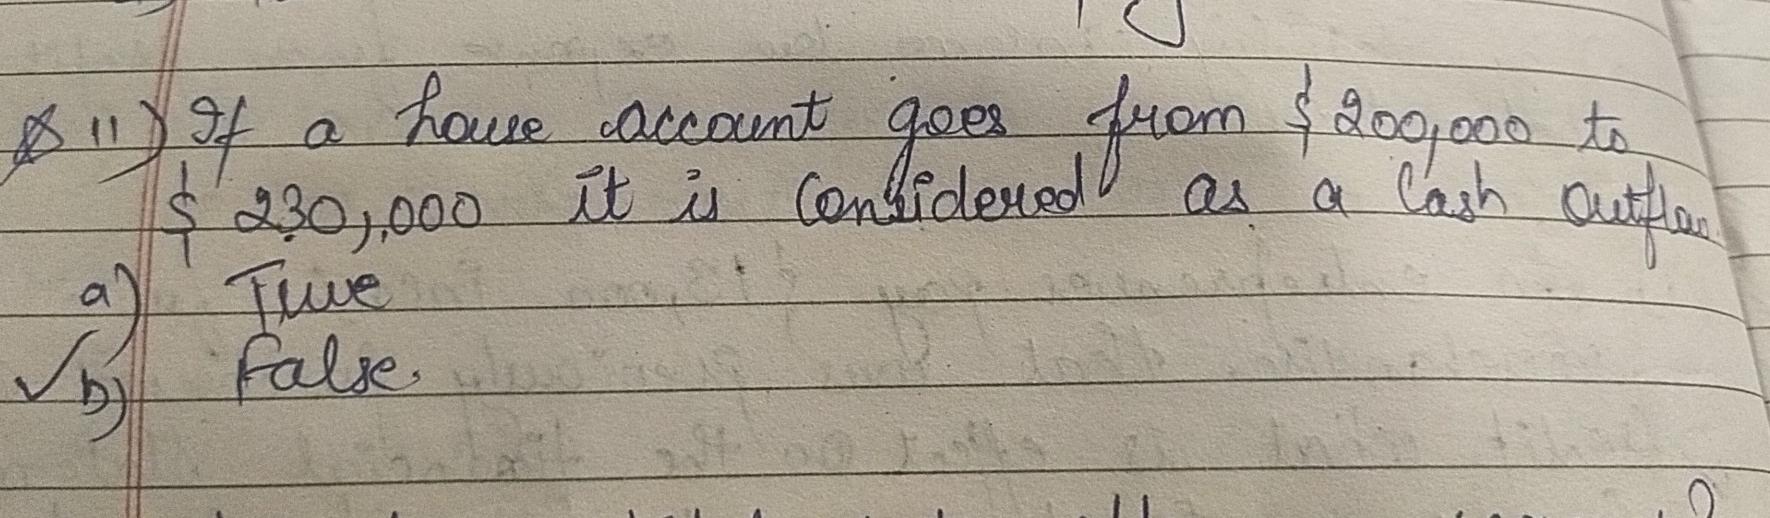 11) If a house account goes from $200,000 to
$ 230,000 it is Considered as a Cash Outflow
a) True
✓ b) False.